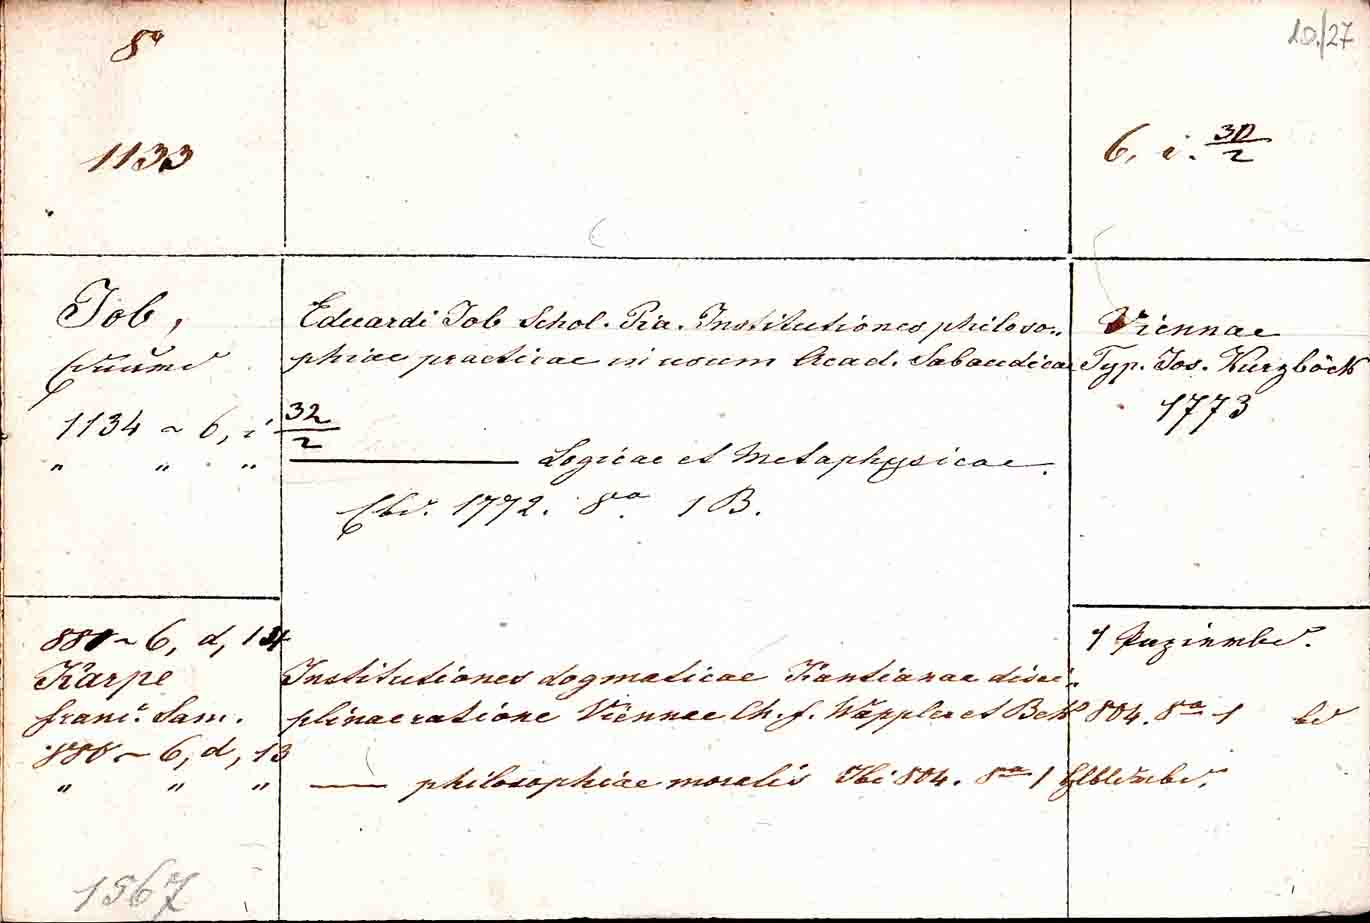 8°
10./27
1133
6, i. 30/2
Job,
Eduard
Eduardi Job Schol. Pia. Institutiones philoso-
phiae practicae in usum Acad. Sabaudicae
Viennae
Typ. Jos. Kurzböck
1773
1134 ~ 6, i 32/2
" " " ——— Logicae et Metaphysicae.
Ebd. 1772. 8° 1 B.
880 ~ 6, d, 14
Karpe
Franc. Sam.
Institutiones dogmaticae Kantianae disci-
plinae ratione Viennae Ch. f. Wappler et Beck 804. 8° 1 bd
1 Papierbd.
880 ~ 6, d, 13
" " " — philosophiae moralis Ibi 804. 8° 1 Hlbldrbd.
1567